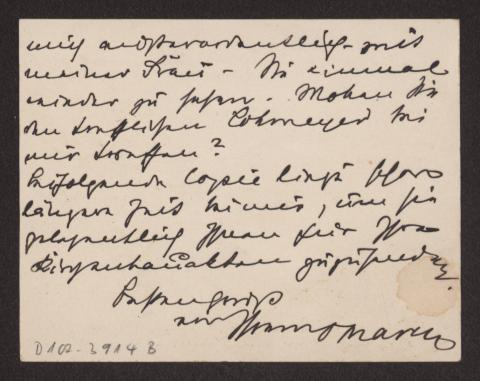 mich außerordentlich mit
meiner Frau – Sie einmal
wieder zu sehen. Wollen Sie
den trefflichen Lohmeyer bei
mir treffen?
Beifolgende Copie liegt schon
längere Zeit bei mir, um sie
gelegentlich Ihnen für Ihre
zuzusenden.
Besten Gruß
von Ihrem
D 102-3914 B